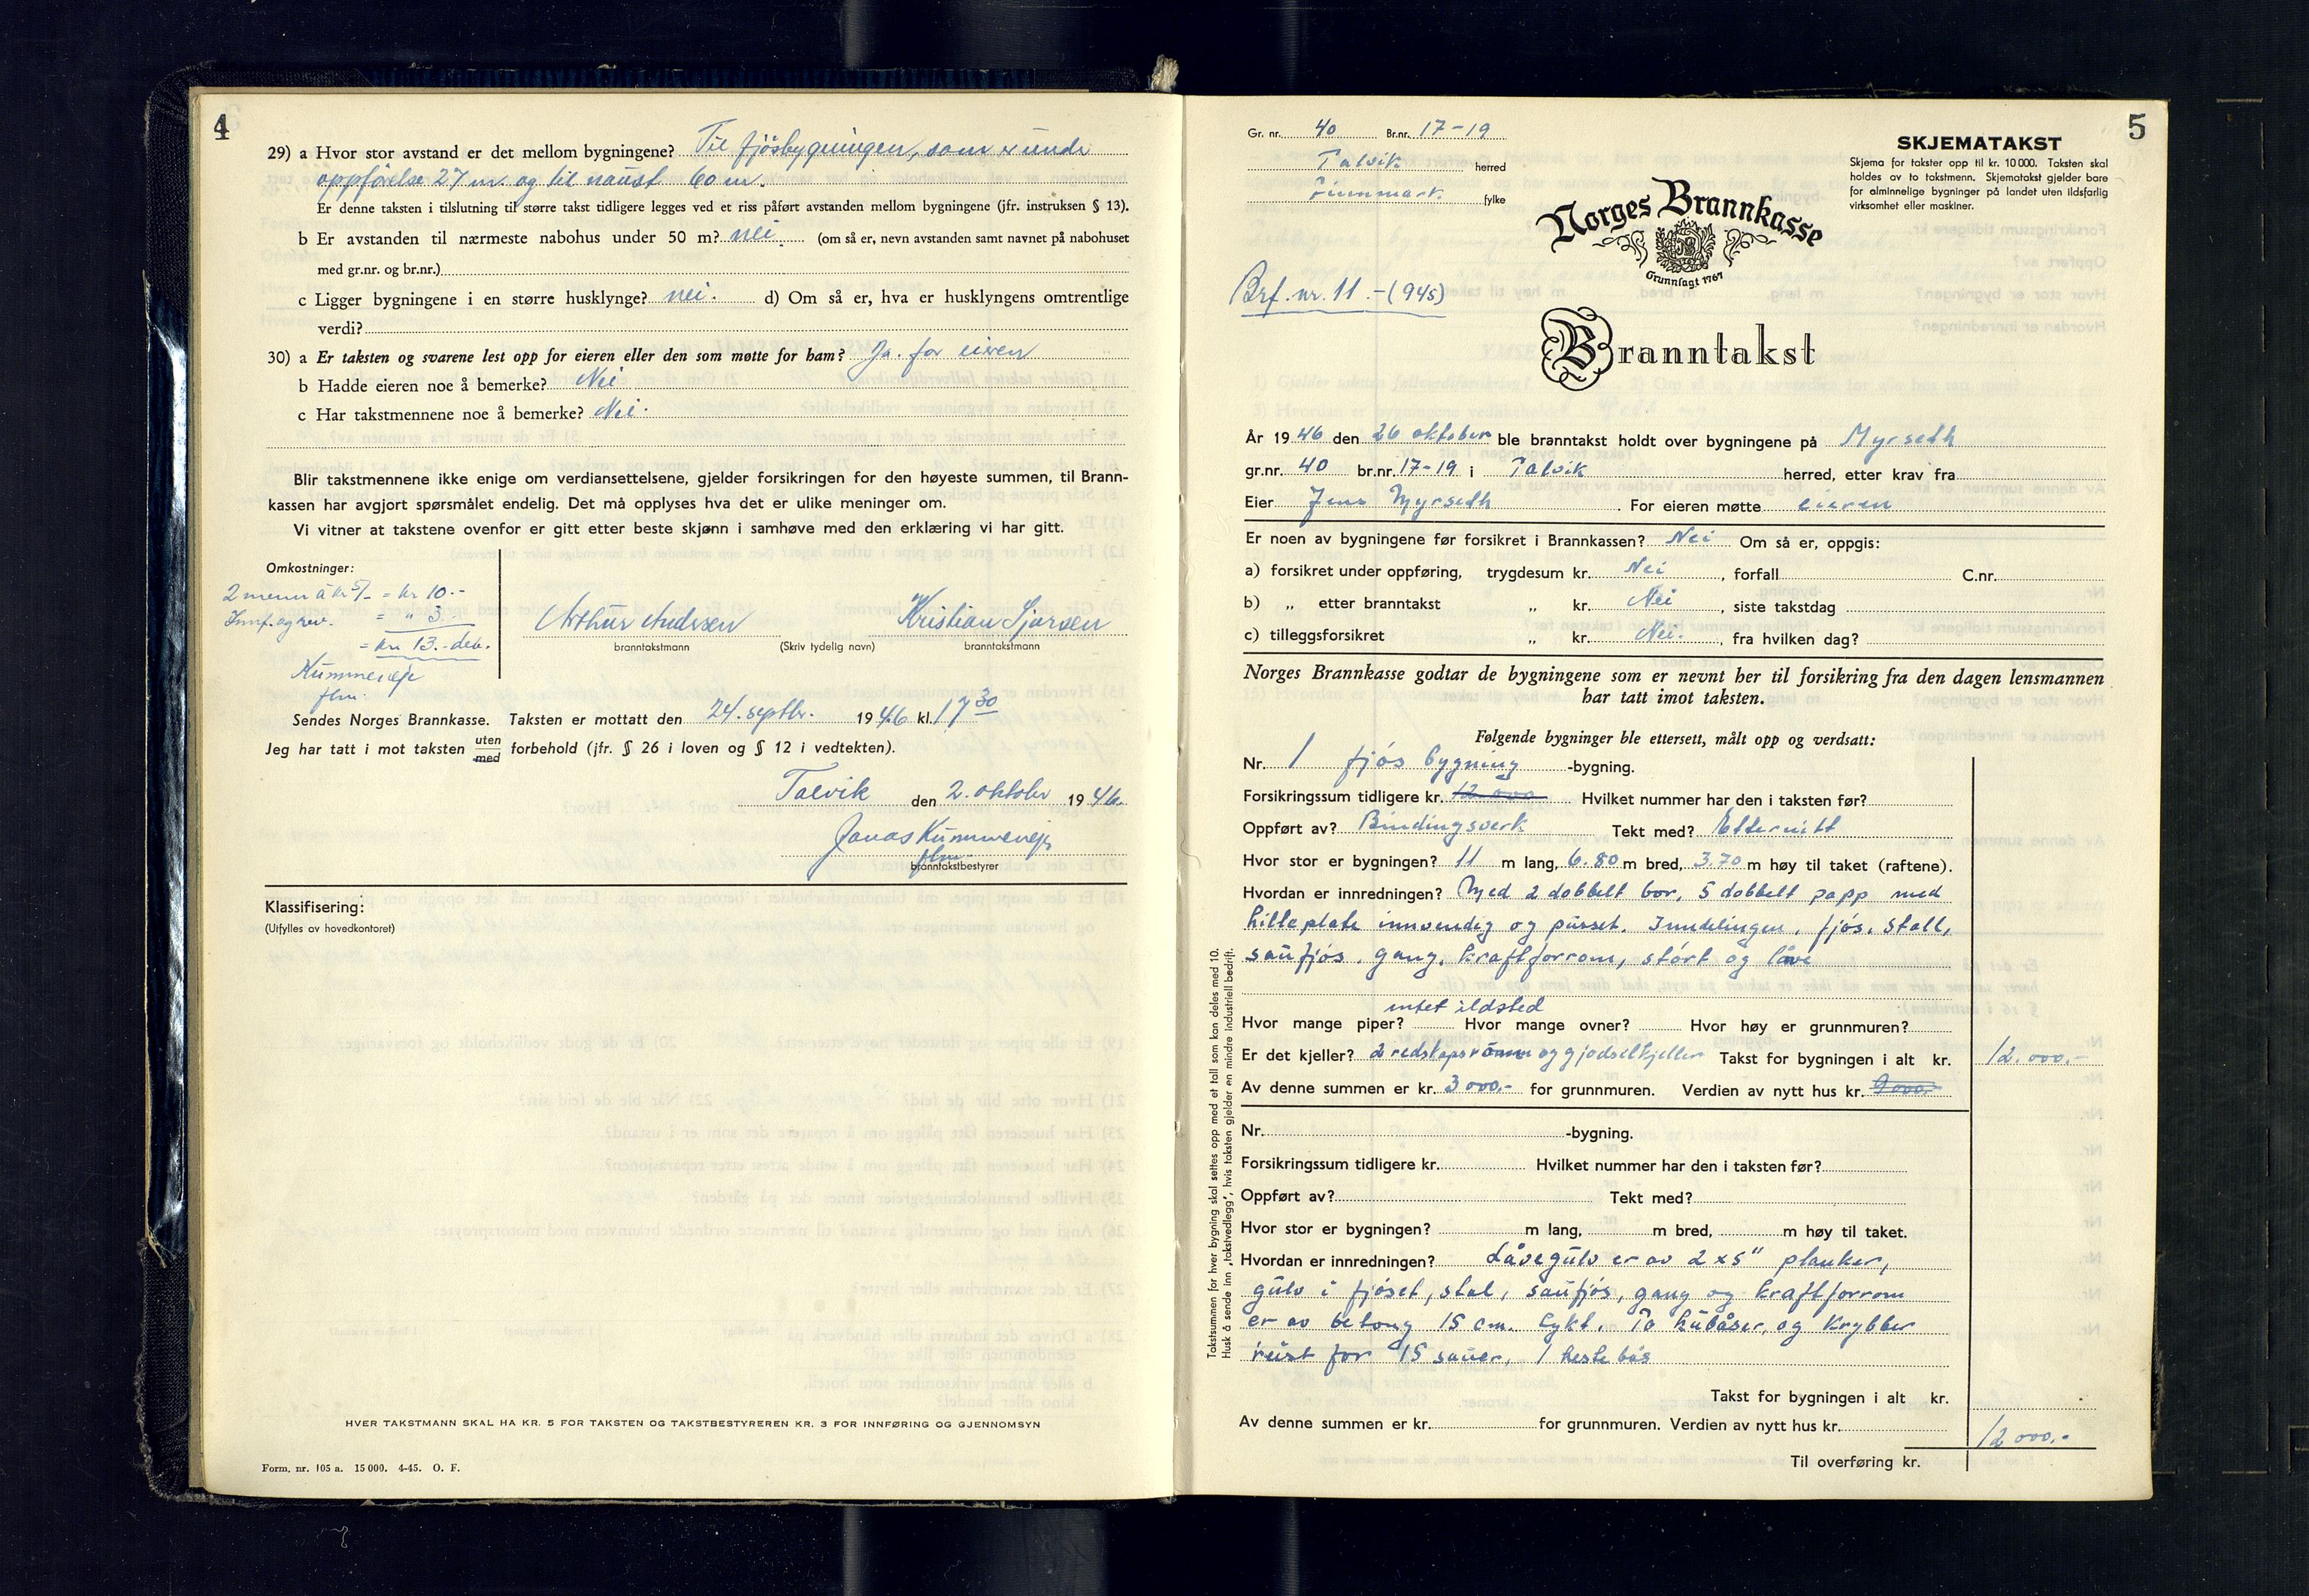 4
29) a Hvor stor avstand er det mellom bygningene? Til fjösbygningen, som er unde
oppförelse 27 m. og til naust 60 m.
Er denne taksten i tilslutning til større takst tidligere legges ved et riss påført avstanden mellom bygningene (jfr. instruksen § 13).
b Er avstanden til nærmeste nabohus under 50 m? nei. (om så er, nevn avstanden samt navnet på nabohuset
med gr.nr. og br.nr.)
c Ligger bygningene i en større husklynge? nei. d) Om så er, hva er husklyngens omtrentlige
verdi?
30) a Er taksten og svarene lest opp for eieren eller den som møtte for ham? Ja. for eieren
b Hadde eieren noe å bemerke? Nei
c Har takstmennene noe å bemerke? Nei.
Blir takstmennene ikke enige om verdiansettelsene, gjelder forsikringen for den høyeste summen, til Brann-
kassen har avgjort spørsmålet endelig. Det må opplyses hva det er ulike meninger om.
Vi vitner at takstene ovenfor er gitt etter beste skjønn i samhøve med den erklæring vi har gitt.
Omkostninger:
2 menn à kr 5/- = kr 10.-
Innf. og rev. = " 3.-
= kr 13.- dev.
Kummeneje
flm.
Arthur Andersen Kristian
branntakstmann (Skriv tydelig navn) branntakstmann
Sendes Norges Brannkasse. Taksten er mottatt den 24. septbr. 1946 kl. 17 30
Jeg har tatt i mot taksten uten med forbehold (jfr. § 26 i loven og § 12 i vedtekten).
Talvik den 2. oktober 1946.
Jonas Kummeneje
flm.
branntakstbestyrer
Klassifisering:
(Utfylles av hovedkontoret)
HVER TAKSTMANN SKAL HA KR. 5 FOR TAKSTEN OG TAKSTBESTYREREN KR. 3 FOR INNFØRING OG GJENNOMSYN
Form. nr. 105 a. 15 000. 4-45. O. F.
5
Gr. nr. 40 Br.nr. 17-19
Talvik herred
Finnmark. fylke
SKJEMATAKST
Skjema for takster opp til kr. 10 000. Taksten skal
holdes av to takstmenn. Skjematakst gjelder bare
for alminnelige bygninger på landet uten ildsfarlig
virksomhet eller maskiner.
Norges Brannkasse
Grunnlagt 1767
Brf. nr. 11.-(945)
Branntakst
År 1946 den 26 oktober ble branntakst holdt over bygningene på Myrseth
gr.nr. 40 br.nr. 17-19 i Talvik herred, etter krav fra
Eier Jens Myrseth. For eieren møtte eieren
Er noen av bygningene før forsikret i Brannkassen? Nei Om så er, oppgis:
a) forsikret under oppføring, trygdesum kr. Nei, forfall C.nr.
b) „ etter branntakst „ kr. Nei, siste takstdag
c) tilleggsforsikret „ kr. Nei., fra hvilken dag?
Norges Brannkasse godtar de bygningene som er nevnt her til forsikring fra den dagen lensmannen
har tatt imot taksten.
Følgende bygninger ble ettersett, målt opp og verdsatt:
Nr. 1 fjós bygning -bygning.
Forsikringssum tidligere kr. 12 000 Hvilket nummer har den i taksten før?
Oppført av? Bindingsverk Tekt med? Etternitt
Hvor stor er bygningen? 11 m lang, 6.80 m bred, 3.70 m høy til taket (raftene).
Hvordan er innredningen? Med 2 dobbelt bor, 5 dobbelt papp med
hilleplate innvendig og pusset. Inndelingen, fjós, stall,
saufjós, gang, kraftforrom, stórt og låve
intet ildsted
Hvor mange piper? Hvor mange ovner? Hvor høy er grunnmuren?
Er det kjeller? 2 redskapsromm og gjødselkjeller Takst for bygningen i alt kr. 12.000.-
Av denne summen er kr. 3 000.- for grunnmuren. Verdien av nytt hus kr. 9000.-
Nr. -bygning.
Forsikringssum tidligere kr. Hvilket nummer har den i taksten før?
Oppført av? Tekt med?
Hvor stor er bygningen? m lang, m bred, m høy til taket.
Hvordan er innredningen? Låvegulv er av 2 x 5" planker,
gulv i fjóset, stal, saufjós, gang og kraftforrom
er av betong 15 cm. tykt. To kubåser, og krybber
reist for 15 sauer, 1 hestebås
Takst for bygningen i alt kr.
Av denne summen er kr. for grunnmuren. Verdien av nytt hus kr.
12 000.-
Til overføring kr.
Takstsummen for hver bygning skal settes opp med et tall som kan deles med 10.
Husk å sende inn „takstvedlegg", hvis taksten gjelder en mindre industriell bedrift.